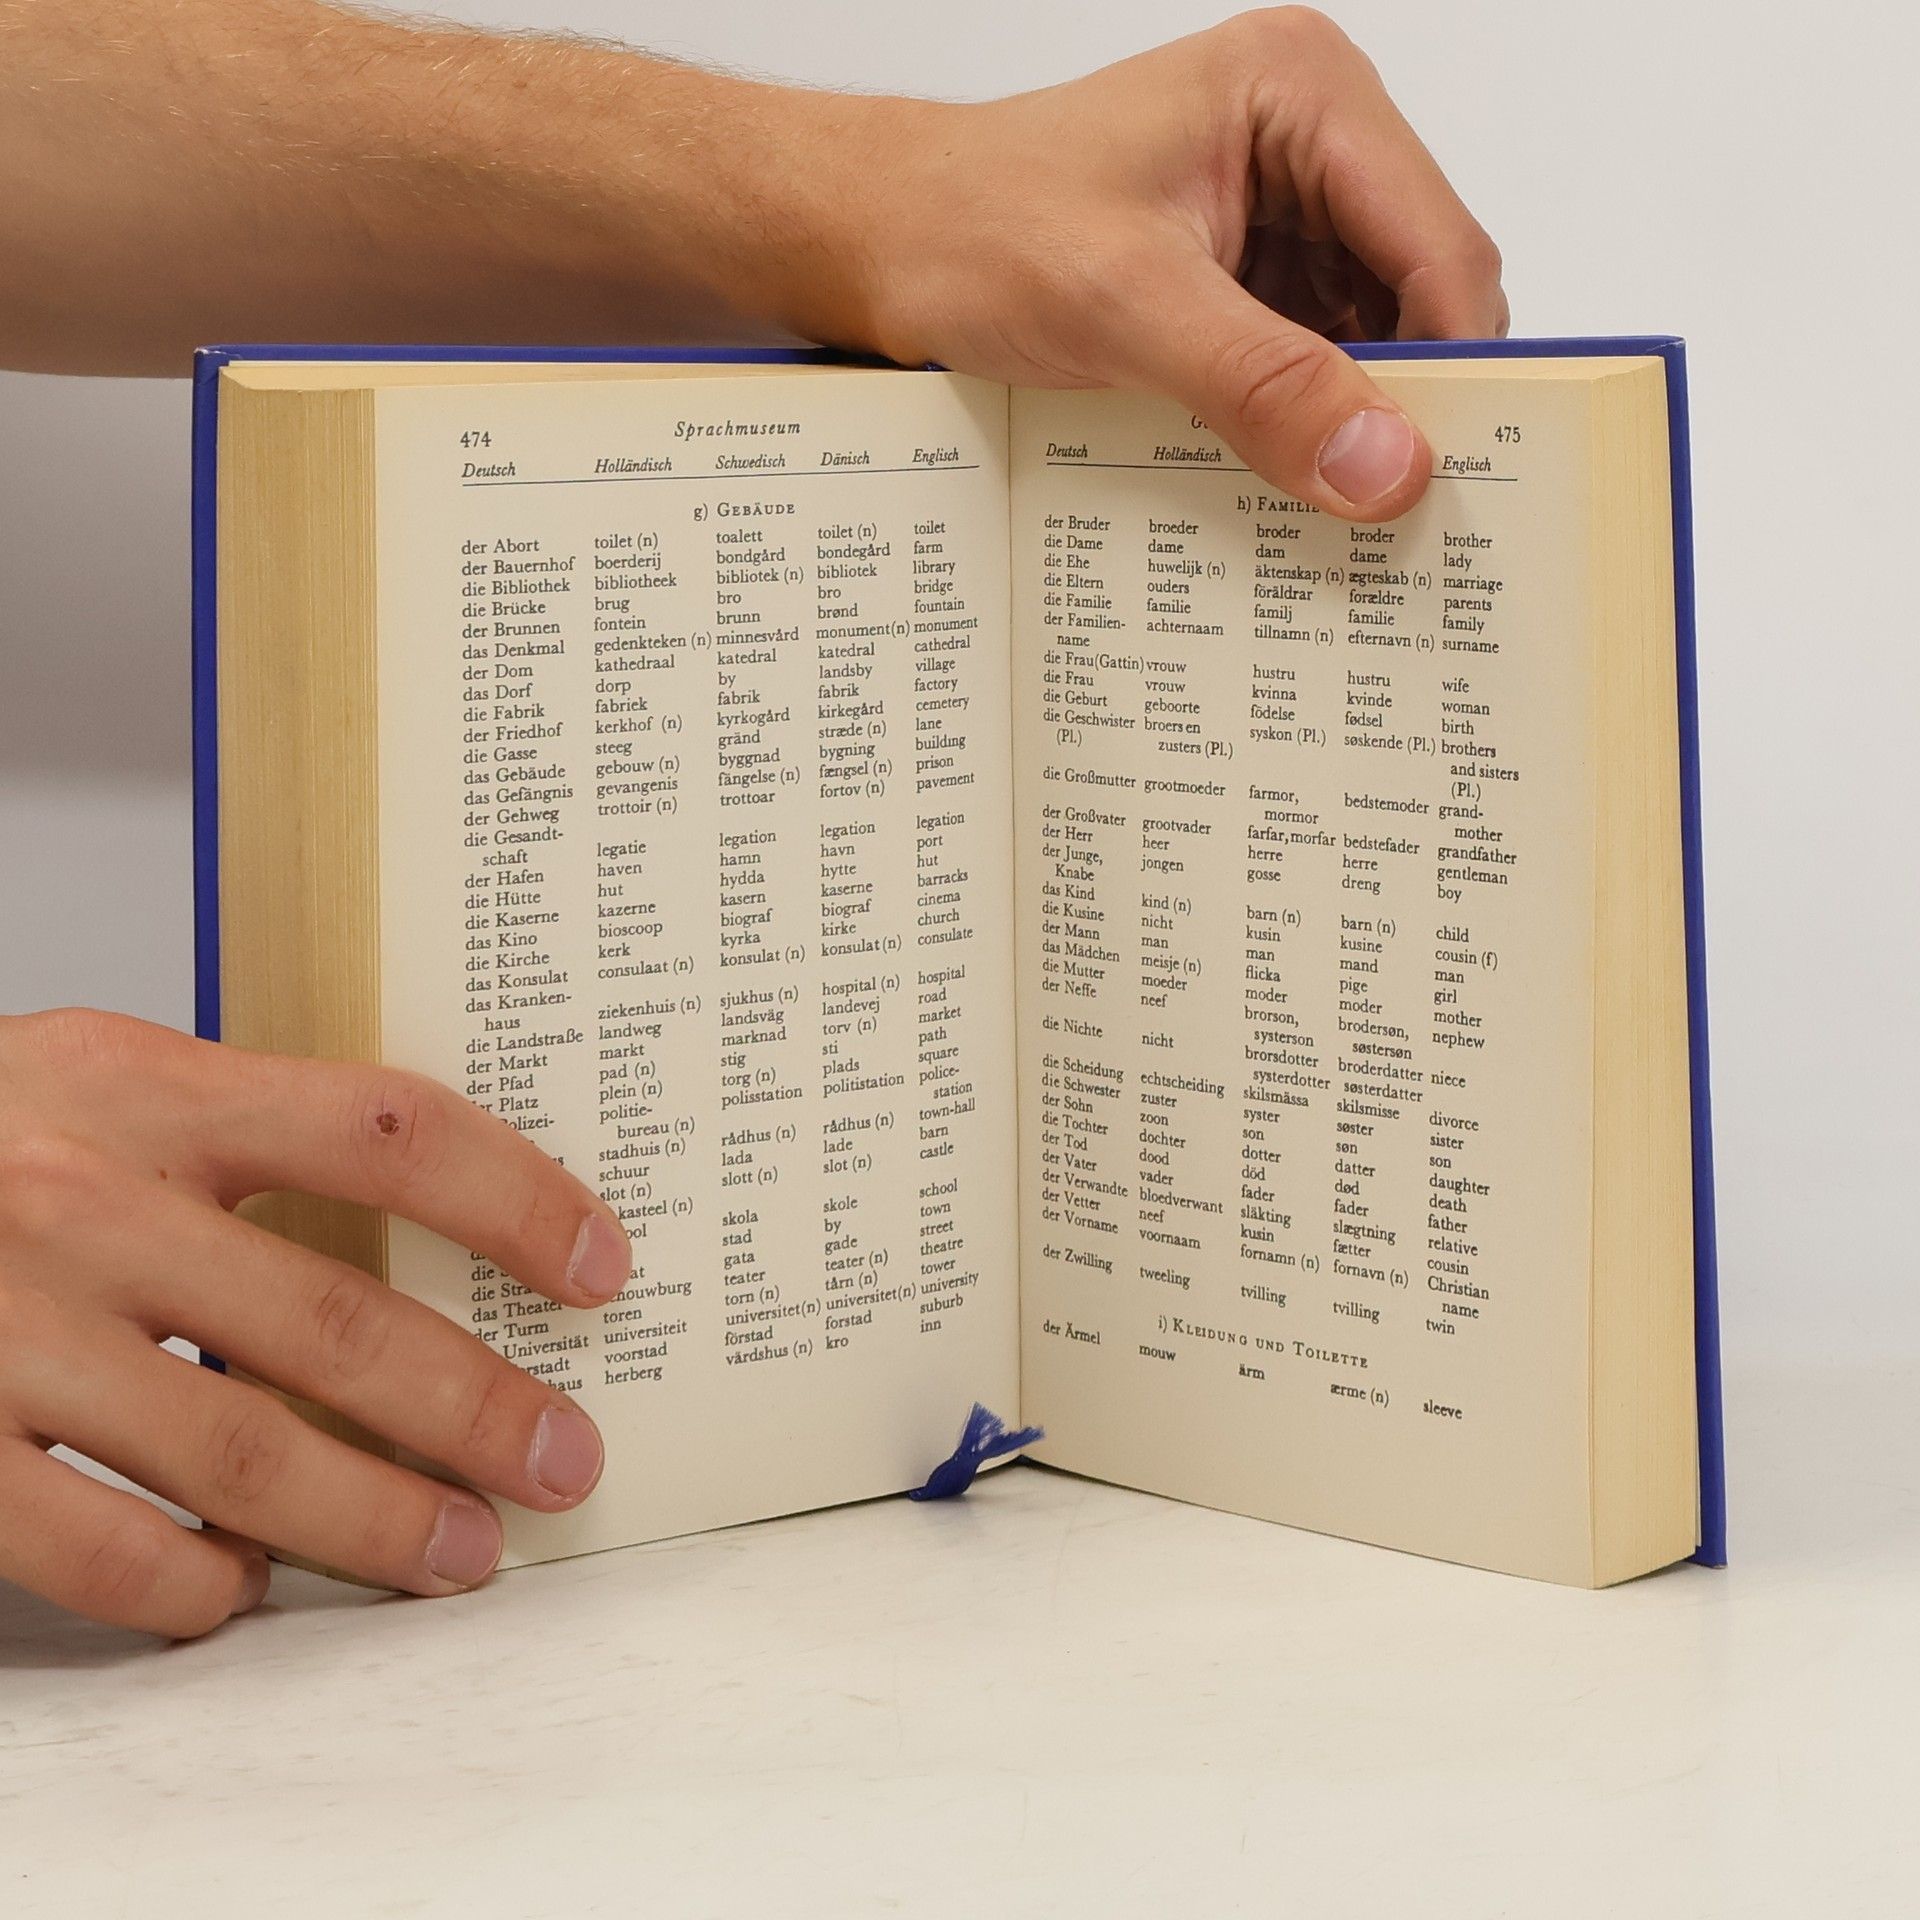 474 Sprachmuseum
Deutsch Holländisch Schwedisch Dänisch Englisch
g) GEBÄUDE
der Abort toilet (n) toalett toilet (n) toilet
der Bauernhof boerderij bondgård bondegård farm
die Bibliothek bibliotheek bibliotek (n) bibliotek library
die Brücke brug bro bro bridge
der Brunnen fontein brunn brønd fountain
das Denkmal gedenkteken (n) minnesvård monument(n) monument
der Dom kathedraal katedral katedral cathedral
das Dorf dorp by landsby village
die Fabrik fabriek fabrik fabrik factory
der Friedhof kerkhof (n) kyrkogård kirkegård cemetery
die Gasse steeg gränd stræde (n) lane
das Gebäude gebouw (n) byggnad bygning building
das Gefängnis gevangenis fängelse (n) fængsel (n) prison
der Gehweg trottoir (n) trottoar fortov (n) pavement
die Gesandt-
schaft legatie legation legation legation
der Hafen haven hamn havn port
die Hütte hut hydda hytte hut
die Kaserne kazerne kasern kaserne barracks
das Kino bioscoop biograf biograf cinema
die Kirche kerk kyrka kirke church
das Konsulat consulaat (n) konsulat (n) konsulat (n) consulate
das Kranken-
haus ziekenhuis (n) sjukhus (n) hospital (n) hospital
die Landstraße landweg landsväg landevej road
der Markt markt marknad torv (n) market
der Pfad pad (n) stig sti path
Platz plein (n) torg (n) plads square
politie- polisstation politistation police-
bureau (n) station
stadhuis (n) rådhus (n) rådhus (n) town-hall
schuur lada lade barn
slot (n) slott (n) slot (n) castle
kasteel (n)
skola skole school
stad by town
die gata gade street
das Theater teater teater (n) theatre
der Turm toren torn (n) tårn (n) tower
Universität universiteit universitet(n) universitet(n) university
voorstad förstad forstad suburb
herberg värdshus (n) kro inn
475
Deutsch Holländisch Englisch
h) FAMILIE
der Bruder broeder broder broder brother
die Dame dame dam dame lady
die Ehe huwelijk (n) äktenskap (n) ægteskab (n) marriage
die Eltern ouders föräldrar forældre parents
die Familie familie familj familie family
der Familien- achternaam tillnamn (n) efternavn (n) surname
name
die Frau(Gattin) vrouw hustru hustru wife
die Frau vrouw kvinna kvinde woman
die Geburt geboorte födelse fødsel birth
die Geschwister broers en syskon (Pl.) søskende (Pl.) brothers
(Pl.) zusters (Pl.) and sisters
(Pl.)
die Großmutter grootmoeder farmor, bedstemoder grand-
mormor mother
der Großvater grootvader farfar, morfar bedstefader grandfather
der Herr heer herre herre gentleman
der Junge, jongen gosse dreng boy
Knabe
das Kind kind (n) barn (n) barn (n) child
die Kusine nicht kusin kusine cousin (f)
der Mann man man mand man
das Mädchen meisje (n) flicka pige girl
die Mutter moeder moder moder mother
der Neffe neef brorson, brodersøn, nephew
systerson søstersøn
die Nichte nicht brorsdotter broderdatter niece
systerdotter søsterdatter
die Scheidung echtscheiding skilsmässa skilsmisse divorce
die Schwester zuster syster søster sister
der Sohn zoon son søn son
die Tochter dochter dotter datter daughter
der Tod dood död død death
der Vater vader fader fader father
der Verwandte bloedverwant släkting slægtning relative
der Vetter neef kusin fætter cousin
der Vorname voornaam fornamn (n) fornavn (n) Christian
name
der Zwilling tweeling tvilling tvilling twin
i) KLEIDUNG UND TOILETTE
der Ärmel mouw ärm ærme (n) sleeve